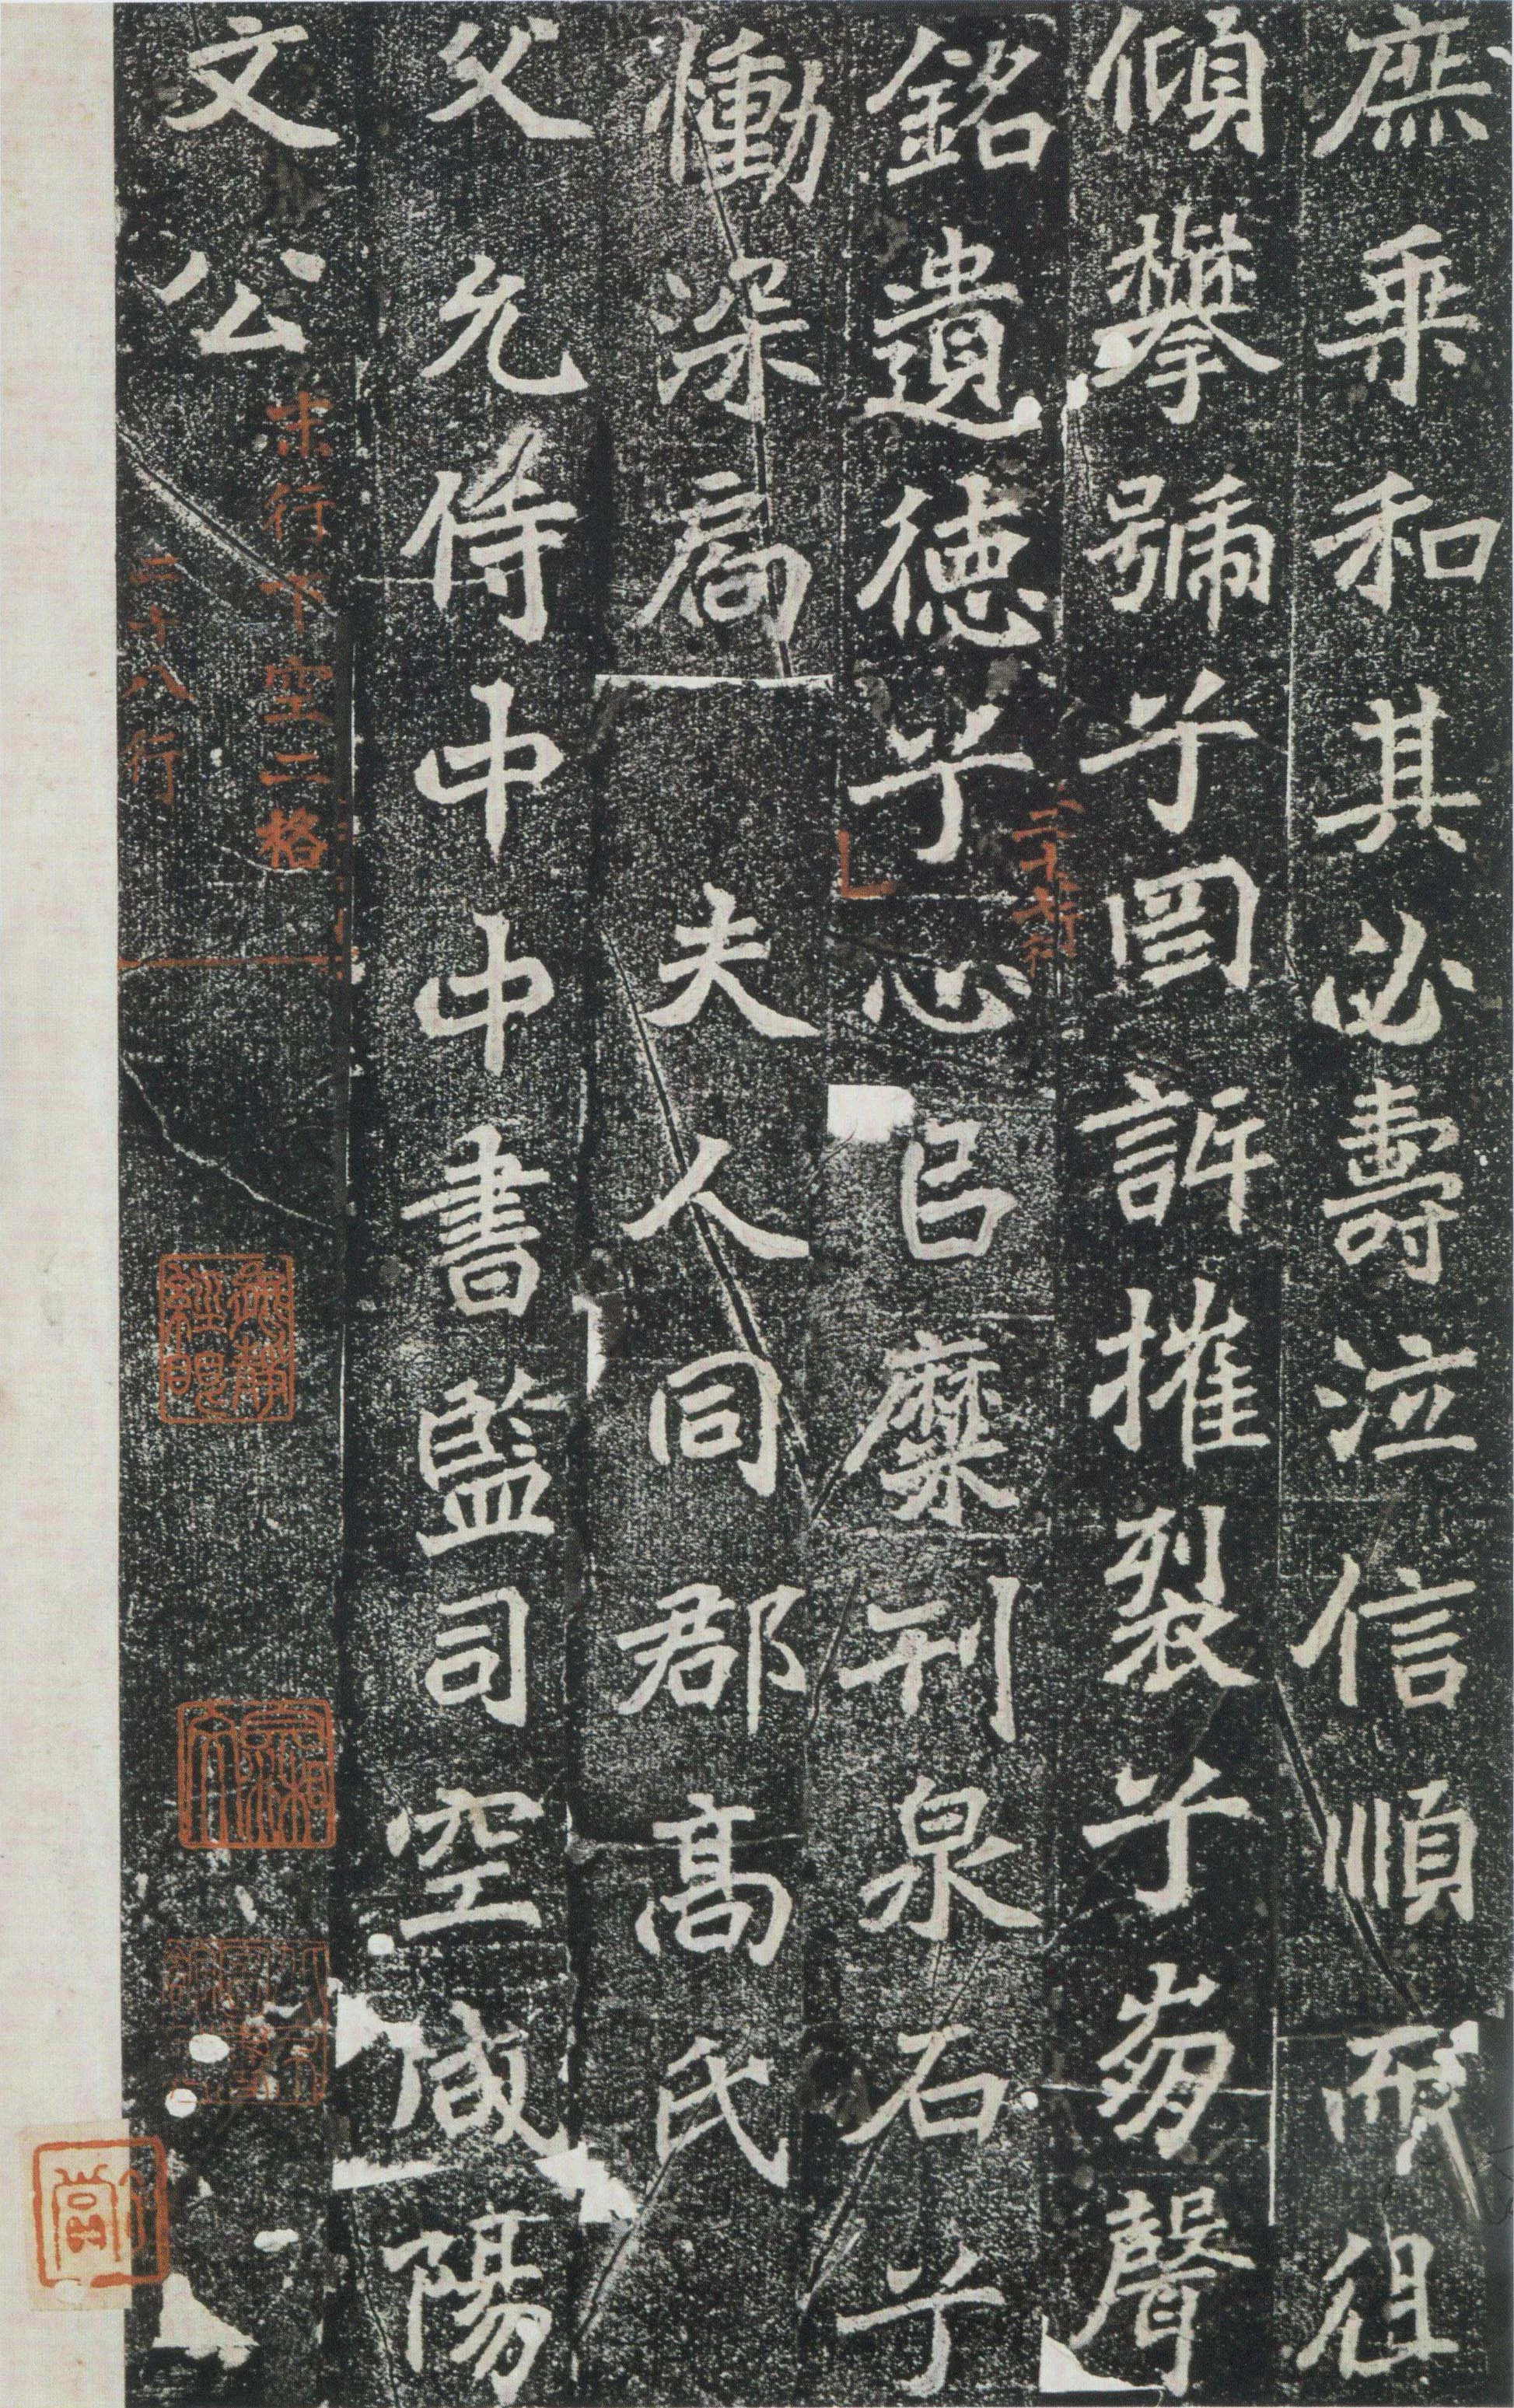 庶乘和其必壽泣信順而徂
傾攀號兮罔訴摧裂兮崩聲
二十七行
銘遺德兮心已糜刊泉石兮
慟深扃 夫人同郡高氏
父允侍中中書監司空咸陽
文公
末行下空二格
二十八行